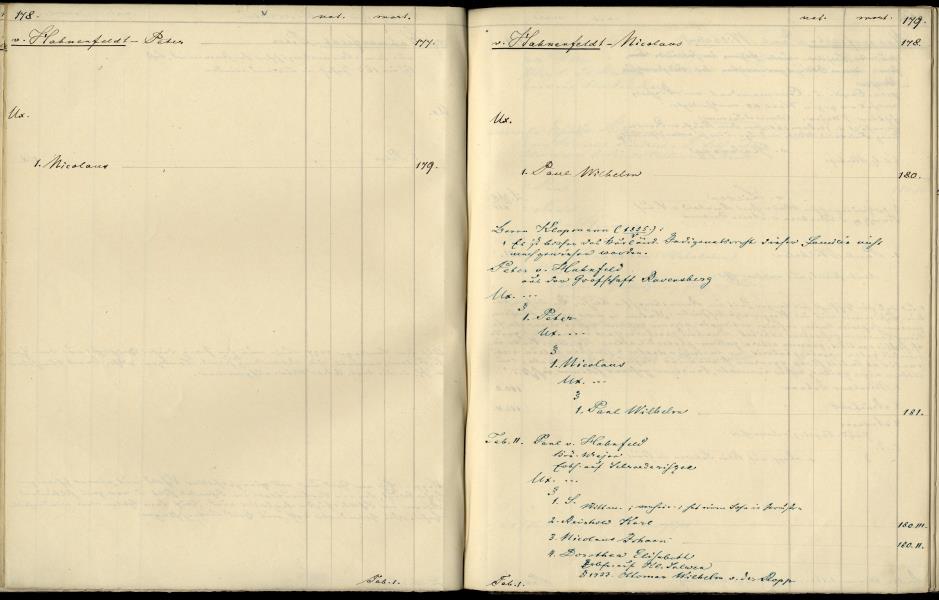 178.
nat. mort.
v. Hahnenfeldt - Peter 177.
Ux.
1. Nicolaus 179.
Tab. I.
nat. mort. 179.
v. Hahnenfeldt - Nicolaus 178.
Ux.
1. Paul Wilhelm 180.
Baron Klopmann (1835):
Es ist bisher das kurländ. Indigenatsrecht dieser Familie nicht
nachgewiesen worden.
Peter v. Hahnfeld
aus der Grafschaft Ravensberg
Ux. ...
1. Peter
Ux. ...
1. Nicolaus
Ux. ...
1. Paul Wilhelm 181.
Tab. II. Paul v. Hahnfeld
Major
Erbh. auf
Ux. ...
1. S.
2. Reinhold Karl 180.III.
3. Nicolaus Johann 180.II.
4. Dorothea Elisabeth
auf Kl. Salwen
Otthomar Wilhelm v. der Ropp
Tab. I.